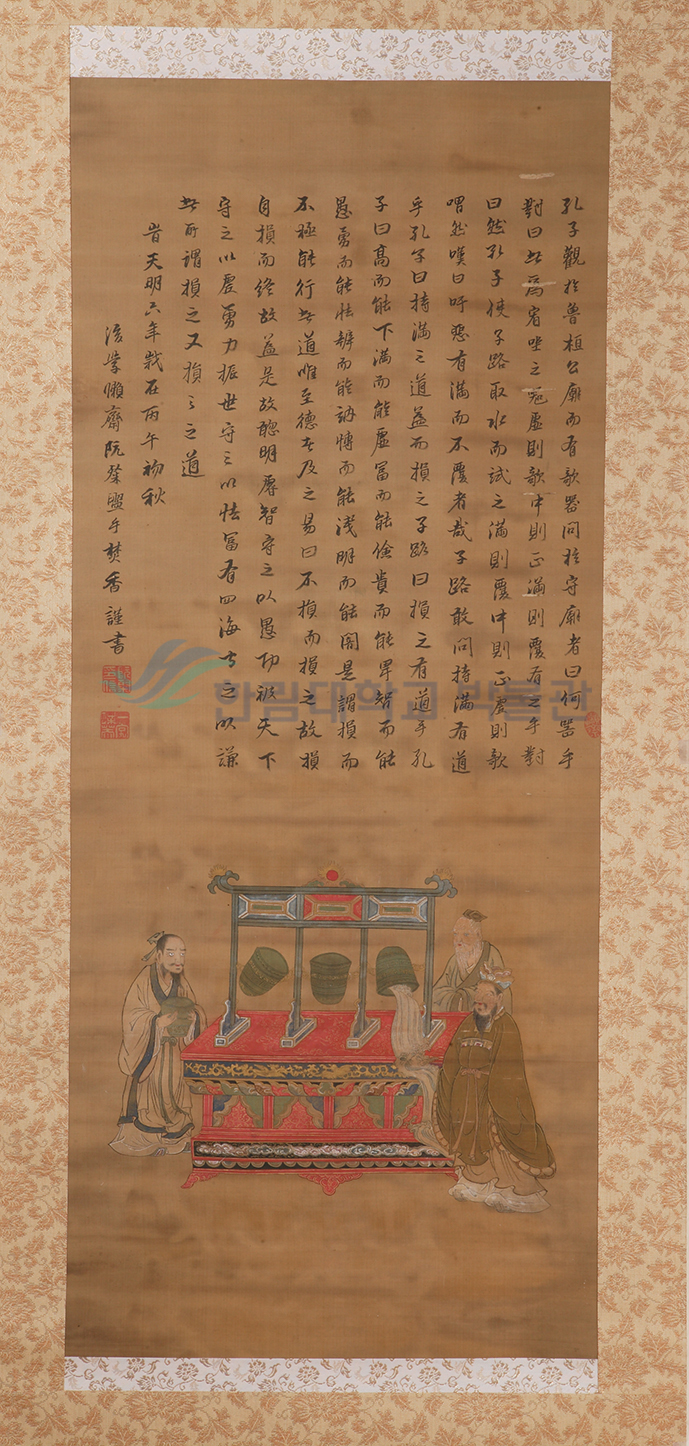 孔子觀於魯桓公廟而有欹器問於守廟者曰何器乎
對曰此為宥坐之器虛則欹中則正滿則覆有之乎對
曰然孔子使子路取水而試之滿則覆中則正虛則欹
喟然嘆曰吁惡有滿而不覆者哉子路敢問持滿有道
乎孔子曰持滿之道益而損之子路曰損之有道乎孔
子曰髙而能下滿而能虛冨而能儉貴而能卑智而能
愚勇而能怯辯而能訥博而能淺明而能闇是謂損而
不極能行此道唯至德者及之易曰不損而損之故損
自損而終故益是故聰明睿智守之以愚功被天下
守之以讓勇力振世守之以怯冨有四海守之以謙
此所謂損之又損之之道
旹天明六年歲在丙午初秋
後學懶齋阮 盥手焚香謹書
한림대학교 박물관